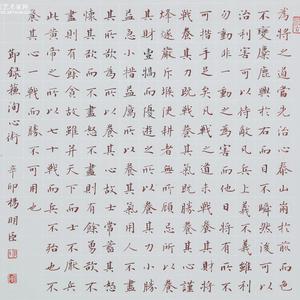 為將之道當先治心泰山崩於前而色
不變麋鹿興於左而目不瞬然後可以
制利害可以待敵凡兵上義不義雖利
勿動非一動之為害而他日將有所不
可措手足也夫惟義可以怒士士以義
怒可與百戰凡戰之道未戰養其財將
戰養其力既戰養其氣既勝養其心謹
烽燧嚴斥堠使耕者無所顧忌所以養
其財豐犒而優游之所以養其力小勝
益急小挫益厲所以養其氣用人不盡
其所欲為所以養其心故士常蓄其怒
懷其欲而不盡怒不盡則有餘勇欲不
盡則有餘貪故雖并天下而士不厭兵
此黃帝之所以七十戰而兵不殆也不
養其心一戰而勝不可用也
節錄蘇洵心術 辛卯楊明臣